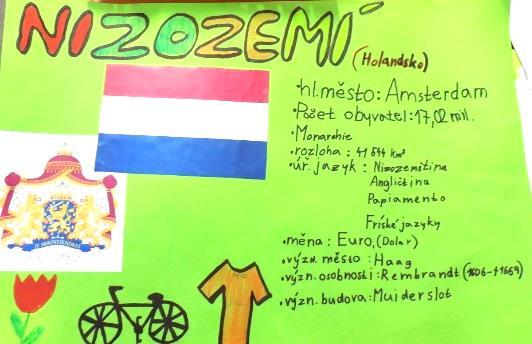 NIZOZEMÍ
(Holandsko)
• hl. město: Amsterdam
• Počet obyvatel: 17,02 mil.
• Monarchie
• rozloha: 41 544 km²
• úř. jazyk: Nizozemština
Angličtina
Papiamento
Fríské jazyky
• měna: Euro, (Dolar)
• význ. město: Haag
• význ. osobnosti: Rembrandt (1606-†1669)
• význ. budova: Muiderslot
JE MAINTIENDRAI